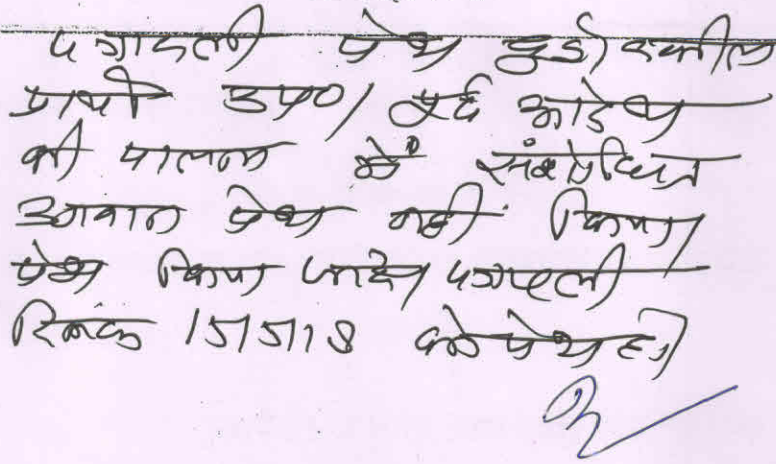 पत्रावली पेश हुई। वकील
प्रार्थी उप०/ पूर्व आदेश
की पालना में संशोधित
उनवान पेश नहीं किया/
पेश किया जावे/ पत्रावली
दिनांक 15/5/18 को पेश हो।